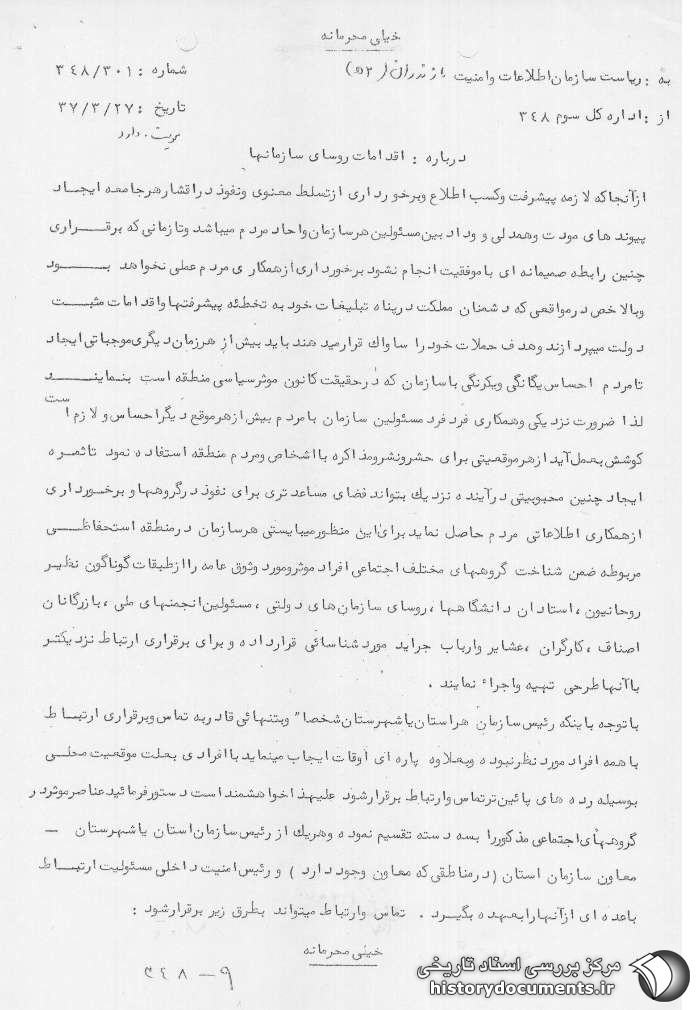 خیلی محرمانه
به : ریاست سازمان اطلاعات و امنیت مازندران (۲ ه)
شماره : ۳۴۸/۳۰۱
از : اداره کل سوم ۳۴۸
تاریخ : ۳۷/۳/۲۷
درباره : اقدامات روسای سازمانها
ازآنجاکه لازمه پیشرفت وکسب اطلاع وبرخورداری ازتسلط معنوی ونفوذ دراقشارهرجامعه ایجاد
پیوند های مودت وهمدلی و وداد بین مسئولین هرسازمان واحاد مردم میباشد وتازمانی که برقراری
چنین رابطه صمیمانه ای باموفقیت انجام نشود برخورداری ازهمکاری مردم عملی نخواهد بود
وبالاخص درمواقعی که دشمنان مملکت درپناه تبلیغات خود به تخطئه پیشرفتها واقدامات مثبت
دولت میپردازند وهدف حملات خود را ساواك قرارمیدهند باید بیش از هرزمان دیگری موجباتی ایجاد
تامردم احساس یگانگی ویکرنگی باسازمان که درحقیقت کانون موثرسیاسی منطقه است بنمایند
لذا ضرورت نزدیکی وهمکاری فرد فرد مسئولین سازمان بامردم بیش ازهرموقع دیگراحساس و لازم است
کوشش بعمل آید ازهرموقعیتی برای حشرونشرومذاکره بااشخاص ومردم منطقه استفاده نمود تاثمره
ایجاد چنین محبوبیتی درآینده نزدیك بتواند فضای مساعد تری برای نفوذ درگروهها و برخورداری
ازهمکاری اطلاعاتی مردم حاصل نماید برای این منظورمیبایستی هرسازمان درمنطقه استحفاظی
مربوطه ضمن شناخت گروههای مختلف اجتماعی افراد موثرومورد وثوق عامه را ازطبقات گوناگون نظیر
روحانیون ، استادان دانشگاهها ، روسای سازمان های دولتی ، مسئولین انجمنهای ملی ، بازرگانان
اصناف ، کارگران ، عشایر وارباب جراید مورد شناسائی قرارداده و برای برقراری ارتباط نزدیکتر
باآنهاطرحی تهیه واجراء نمایند .
باتوجه باینکه رئیس سازمان هراستان یاشهرستان شخصا" وبتنهائی قادربه تماس وبرقراری ارتباط
باهمه افراد مورد نظرنبوده وبعلاوه پاره ای اوقات ایجاب مینماید باافرادی بعلت موقعیت محلی
بوسیله رده های پائین ترتماس وارتباط برقرارشود علیهذا خواهشمند است دستورفرمائید عناصرموثردر
گروههای اجتماعی مذکوررا بسه دسته تقسیم نموده وهریك از رئیس سازمان استان یاشهرستان –
معاون سازمان استان (درمناطقی که معاون وجود دارد ) و رئیس امنیت داخلی مسئولیت ارتباط
باعده ای ازآنهارابعهده بگیرد . تماس وارتباط میتواند بطرق زیر برقرارشود :
خیلی محرمانه
۳۴۸ – ۹
مرکز بررسی اسناد تاریخی
historydocuments.ir